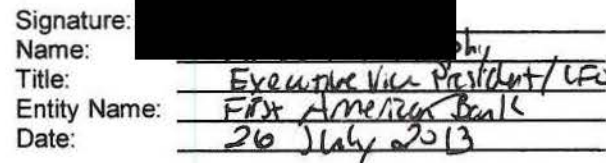 Signature:
Name: phy
Title: Executive Vice President / CFO
Entity Name: First American Bank
Date: 26 July 2013